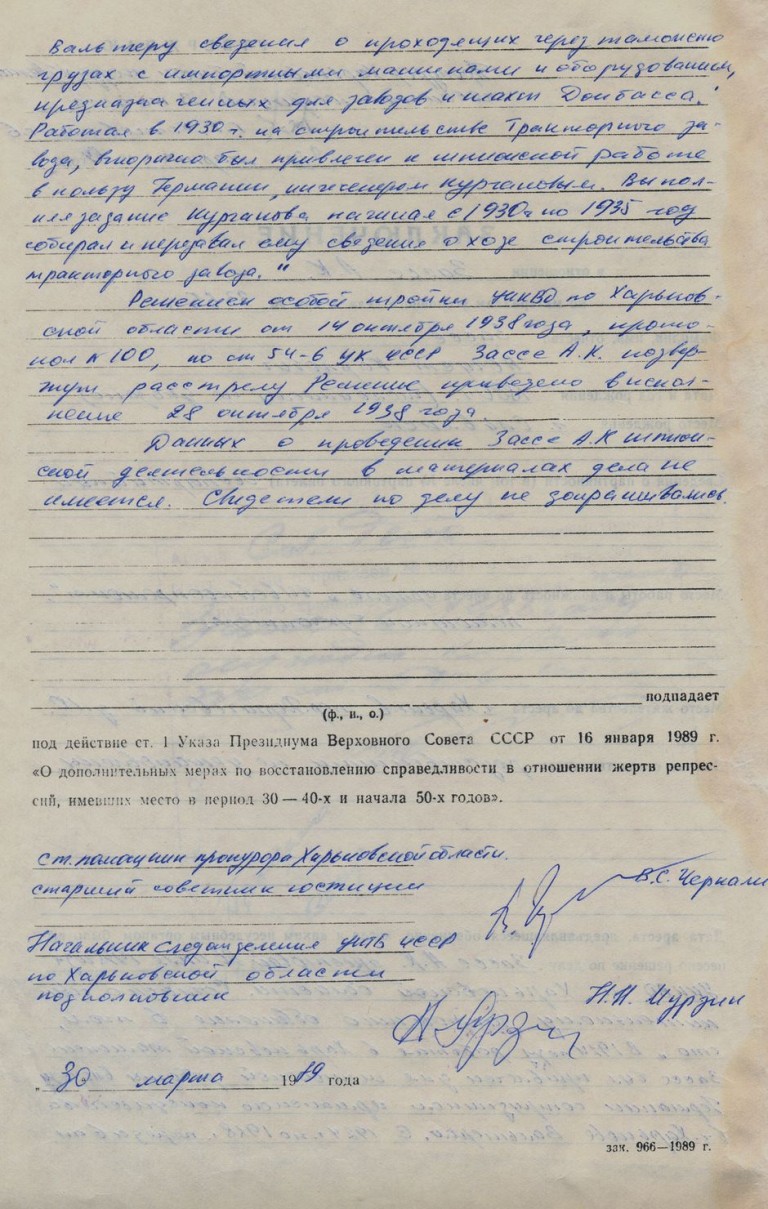 Вальтеру сведения о проходящих через таможню
грузах с импортными машинами и оборудованием,
предназначенных для заводов и шахт Донбасса."
Работая в 1930 г. на строительстве Тракторного за-
вода, вторично был привлечен к шпионской работе
в пользу Германии, инженером Кургановым. Выпол-
няя задание Курганова начиная с 1930г по 1935 год
собирал и передавал ему сведения о ходе строительства
тракторного завода."
Решением особой тройки УНКВД по Харьков-
ской области от 14 октября 1938 года, прото-
кол № 100, по ст 54-6 УК УССР Зассе А.К. подвер-
жут расстрелу Решение приведено в испол-
нение 28 октября 1938 года.
Данных о проведении Зассе А.К шпион-
ской деятельности в материалах дела не
имеется. Свидетели по делу не допрашивались.
подпадает
(ф., и., о.)
под действие ст. 1 Указа Президиума Верховного Совета СССР от 16 января 1989 г.
«О дополнительных мерах по восстановлению справедливости в отношении жертв репрес-
сий, имевших место в период 30 — 40-х и начала 50-х годов».
Ст. помощник прокурора Харьковской области.
старший советник юстиции
В.С.
Начальник следотделения УКГБ УССР
по Харьковской области
подполковник
Н.Н. Мурзин
„ 30 марта 1989 года
зак. 966—1989 г.